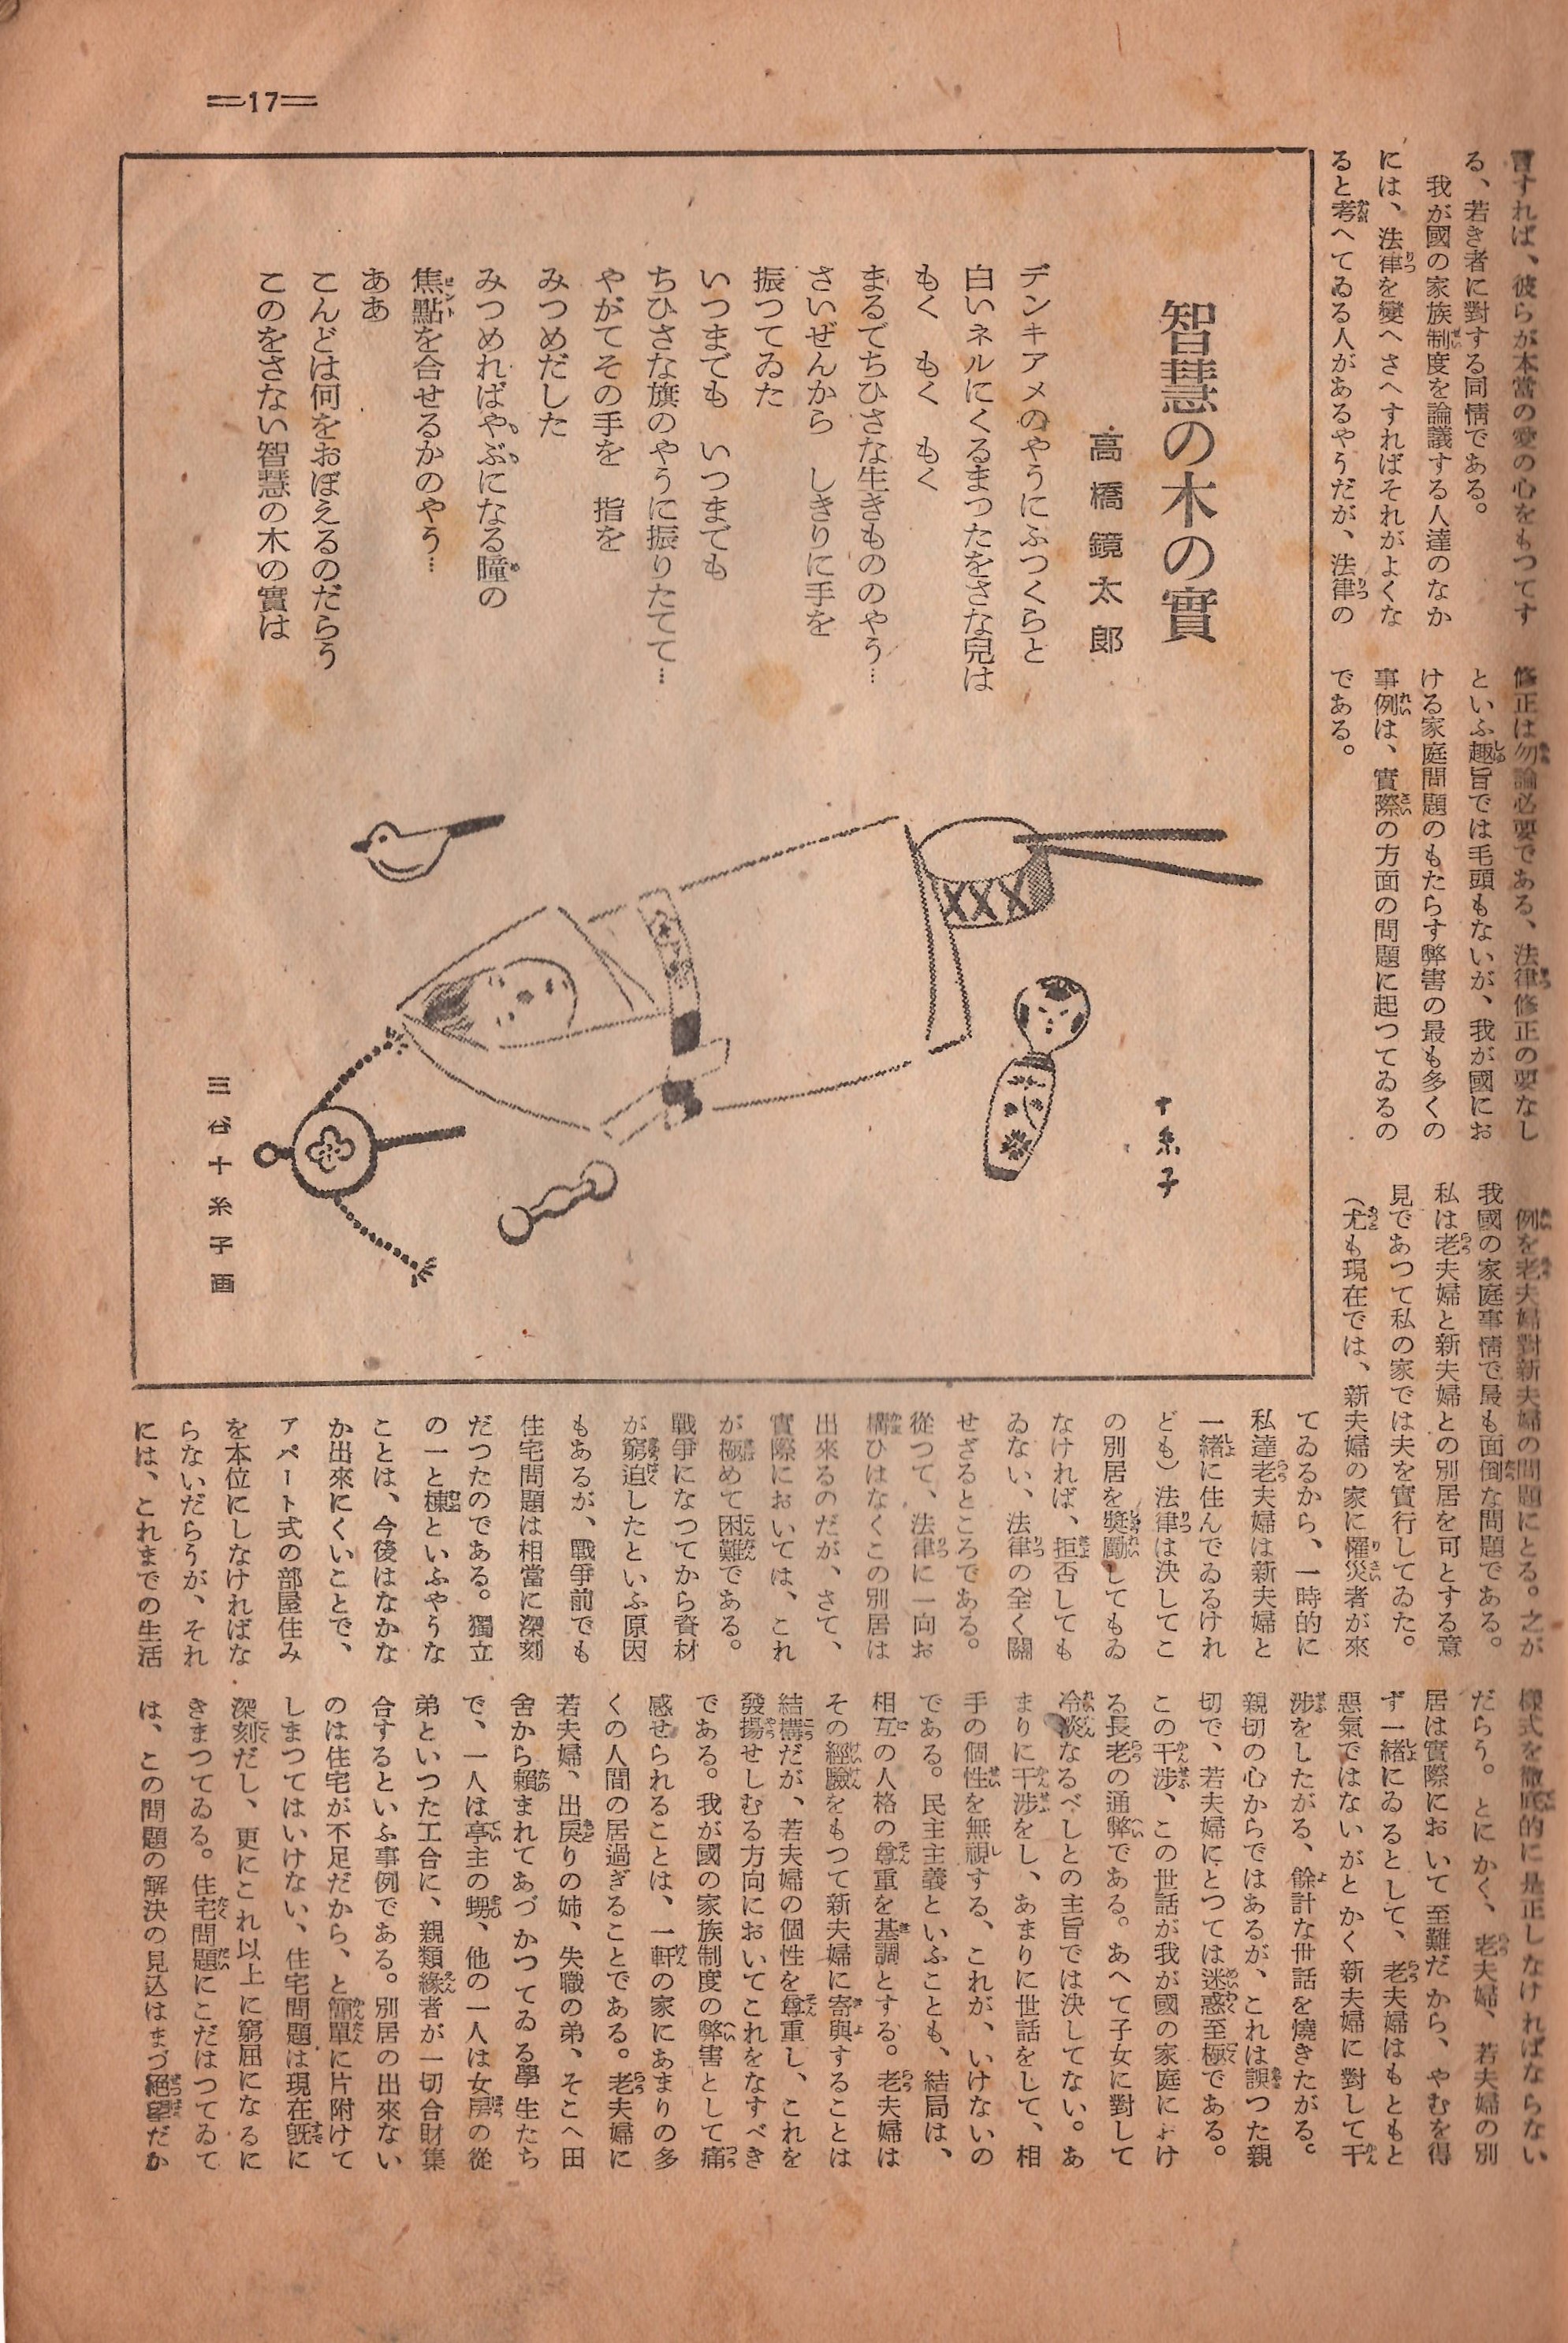 =17=
言すれば、彼らが本當の愛の心をもつてす
る、若き者に對する同情である。
我が國の家族制度を論議する人達のなか
には、法律を變へさへすればそれがよくな
ると考へてゐる人があるやうだが、法律の
修正は勿論必要である、法律修正の要なし
といふ趣旨では毛頭もないが、我が國にお
ける家庭問題のもたらす弊害の最も多くの
事例は、實際の方面の問題に起つてゐるの
である。
例を老夫婦對新夫婦の問題にとる。之が
我國の家庭事情で最も面倒な問題である。
私は老夫婦と新夫婦との別居を可とする意
見であつて私の家では夫を實行してゐた。
(尤も現在では、新夫婦の家に罹災者が來
てゐるから、一時的に
私達老夫婦は新夫婦と
一緒に住んでゐるけれ
ども)法律は決してこ
の別居を奬勵してもゐ
なければ、拒否しても
ゐない、法律の全く關
せざるところである。
從つて、法律に一向お
構ひはなくこの別居は
出來るのだが、さて、
實際においては、これ
が極めて困難である。
戰爭になつてから資材
が窮迫したといふ原因
もあるが、戰爭前でも
住宅問題は相當に深刻
だつたのである。獨立
の一と棟といふやうな
ことは、今後はなかな
か出來にくいことで、
アパート式の部屋住み
を本位にしなければな
らないだらうが、それ
には、これまでの生活
樣式を徹底的に是正しなければならない
だらう。とにかく、老夫婦、若夫婦の別
居は實際において至難だから、やむを得
ず一緒にゐるとして、老夫婦はもともと
惡氣ではないがとかく新夫婦に對して干
涉をしたがる、餘計な世話を燒きたがる。
親切の心からではあるが、これは誤つた親
切で、若夫婦にとつては迷惑至極である。
この干涉、この世話が我が國の家庭におけ
る長老の通弊である。あへて子女に對して
冷淡なるべしとの主旨では決してない。あ
まりに干涉をし、あまりに世話をして、相
手の個性を無視する、これが、いけないの
である。民主主義といふことも、結局は、
相互の人格の尊重を基調とする。老夫婦は
その經驗をもつて新夫婦に寄與することは
結構だが、若夫婦の個性を尊重し、これを
發揚せしむる方向においてこれをなすべき
である。我が國の家族制度の弊害として痛
感せられることは、一軒の家にあまりの多
くの人間の居過ぎることである。老夫婦に
若夫婦、出戾りの姉、失職の弟、そこへ田
舍から賴まれてあづかつてゐる學生たち
で、一人は亭主の甥、他の一人は女房の從
弟といつた工合に、親類緣者が一切合財集
合するといふ事例である。別居の出來ない
のは住宅が不足だから、と簡單に片附けて
しまつてはいけない、住宅問題は現在旣に
深刻だし、更にこれ以上に窮屈になるに
きまつてゐる。住宅問題にこだはつてゐて
は、この問題の解決の見込はまづ絕望だか
智慧の木の實
高橋鏡太郎
デンキアメのやうにふつくらと
白いネルにくるまつたをさな兒は
もく もく もく
まるでちひさな生きもののやう…
さいぜんから しきりに手を
振つてゐた
いつまでも いつまでも
ちひさな旗のやうに振りたてて…
やがてその手を 指を
みつめだした
みつめればやぶになる瞳の
焦點を合せるかのやう…
ああ
こんどは何をおぼえるのだらう
このをさない智慧の木の實は
十糸子
三谷十糸子画